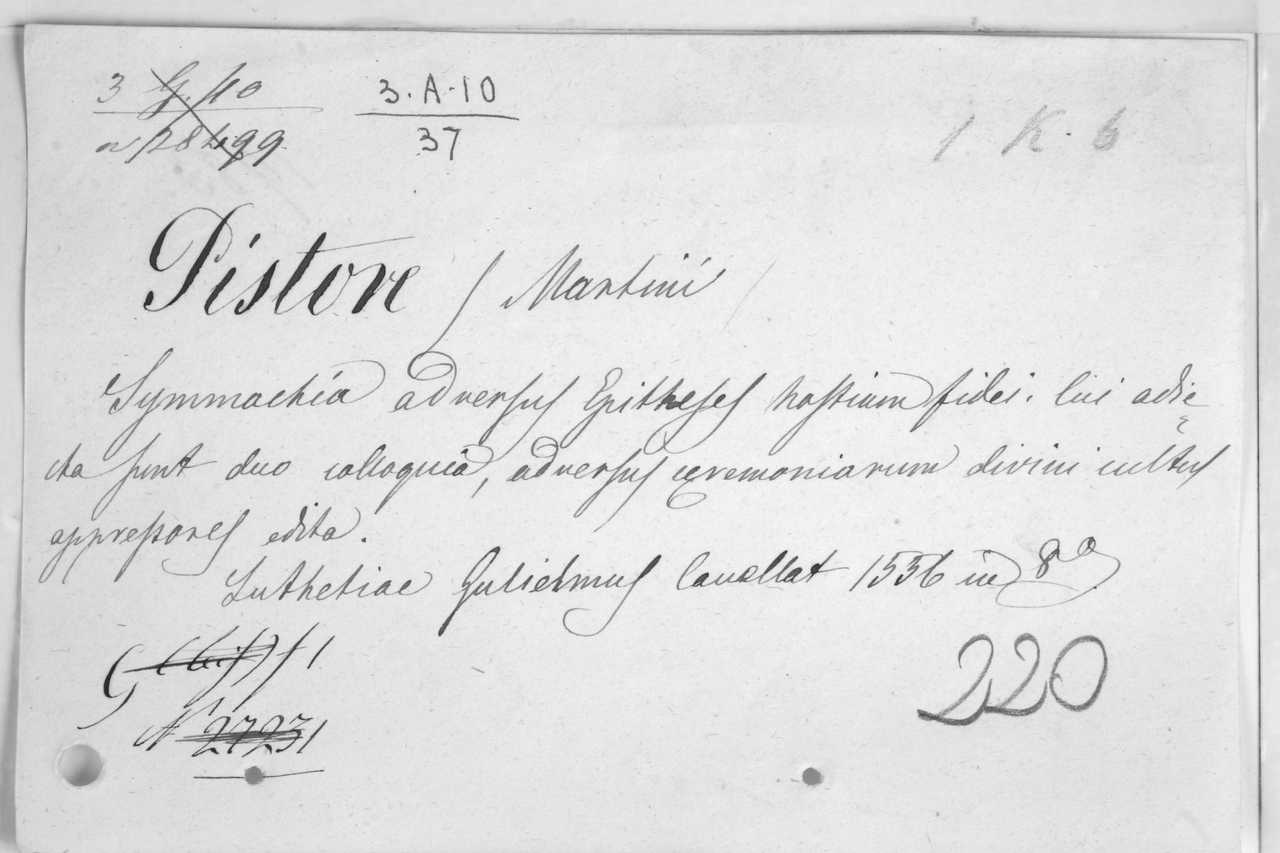 3 G. 40 3·A·10 1 K. 6
N 28499 37
Pistore / Martini /
Symmachia adversus Epitheses hostium fidei. Cui adie-
cta sunt duo colloquia, adversus cęremoniarum divini cultus
oppressores edita.
Luthetiae Gulielmus Cavellat 1556 in 8º
G f 1
N 27231 220